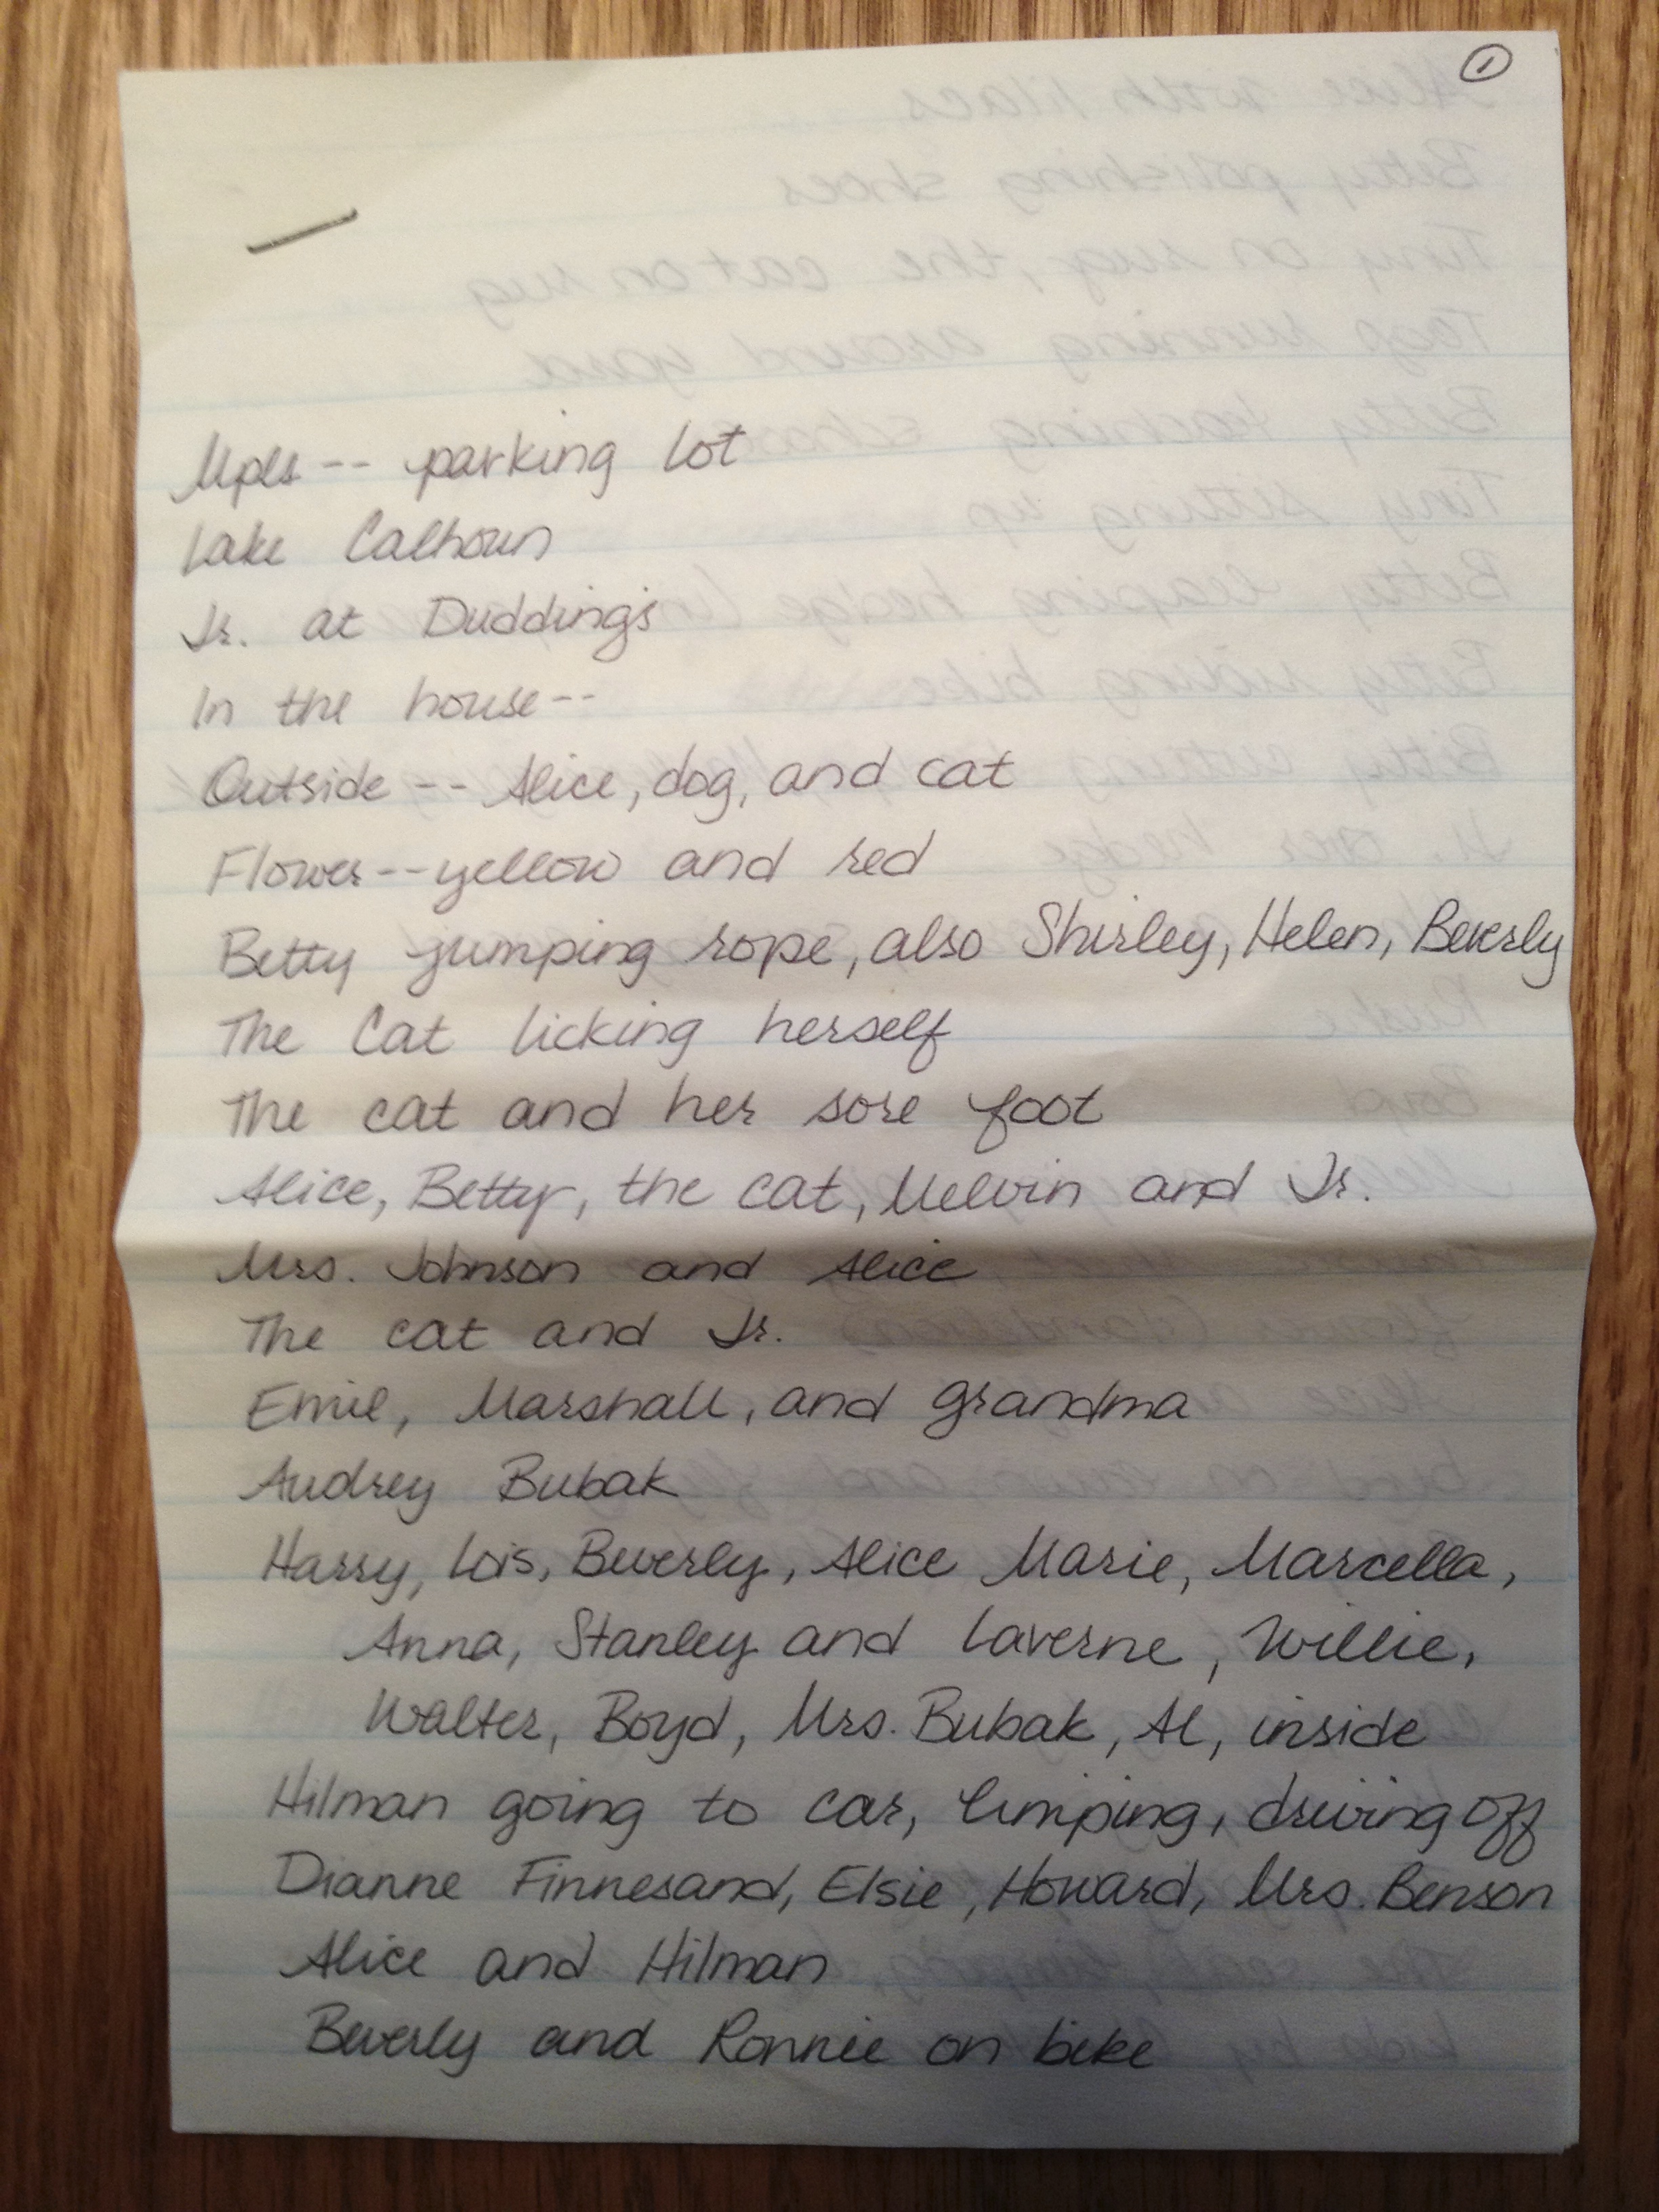 1
Mpls -- parking lot
Lake Calhoun
Jr. at Dudding's
In the house --
Outside -- Alice, dog, and cat
Flower -- yellow and red
Betty jumping rope, also Shirley, Helen, Beverly
The Cat licking herself
The cat and her sore foot
Alice, Betty, the cat, Melvin and Jr.
Mrs. Johnson and Alice
The cat and Jr.
Emil, Marshall, and grandma
Audrey Bubak
Harry, Lois, Beverly, Alice Marie, Marcella,
Anna, Stanley and Laverne, Willie,
Walter, Boyd, Mrs. Bubak, Al, inside
Hilman going to car, limping, driving off
Dianne Finnesand, Elsie, Howard, Mrs. Benson
Alice and Hilman
Beverly and Ronnie on bike